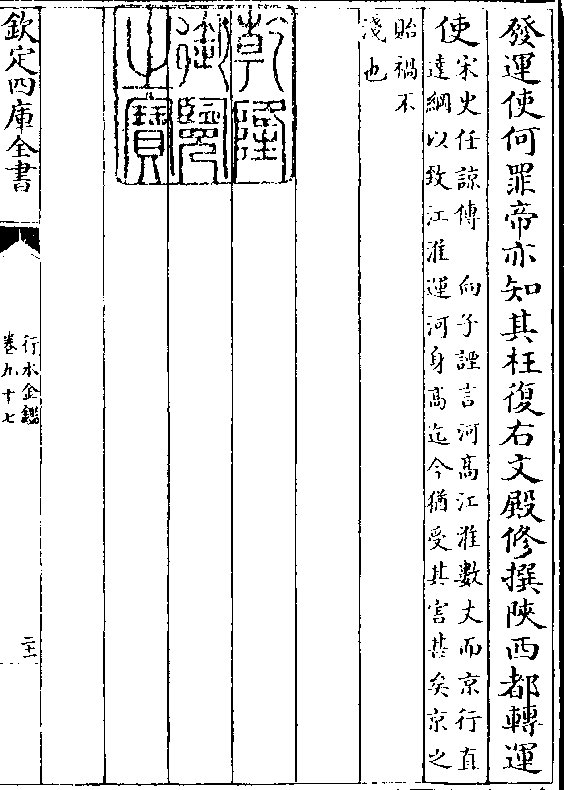 發運使何罪帝亦知其枉復右文殿修撰陝西都轉運
使
宋史任諒傳　向子諲言河髙江淮數丈而京行直
達綱以致江淮運河身髙迄今猶受其害甚矣京之
貽禍不
淺也
乾隆
御覽
之寶
欽定四庫全書
行水金鑑
卷九十七
二十一